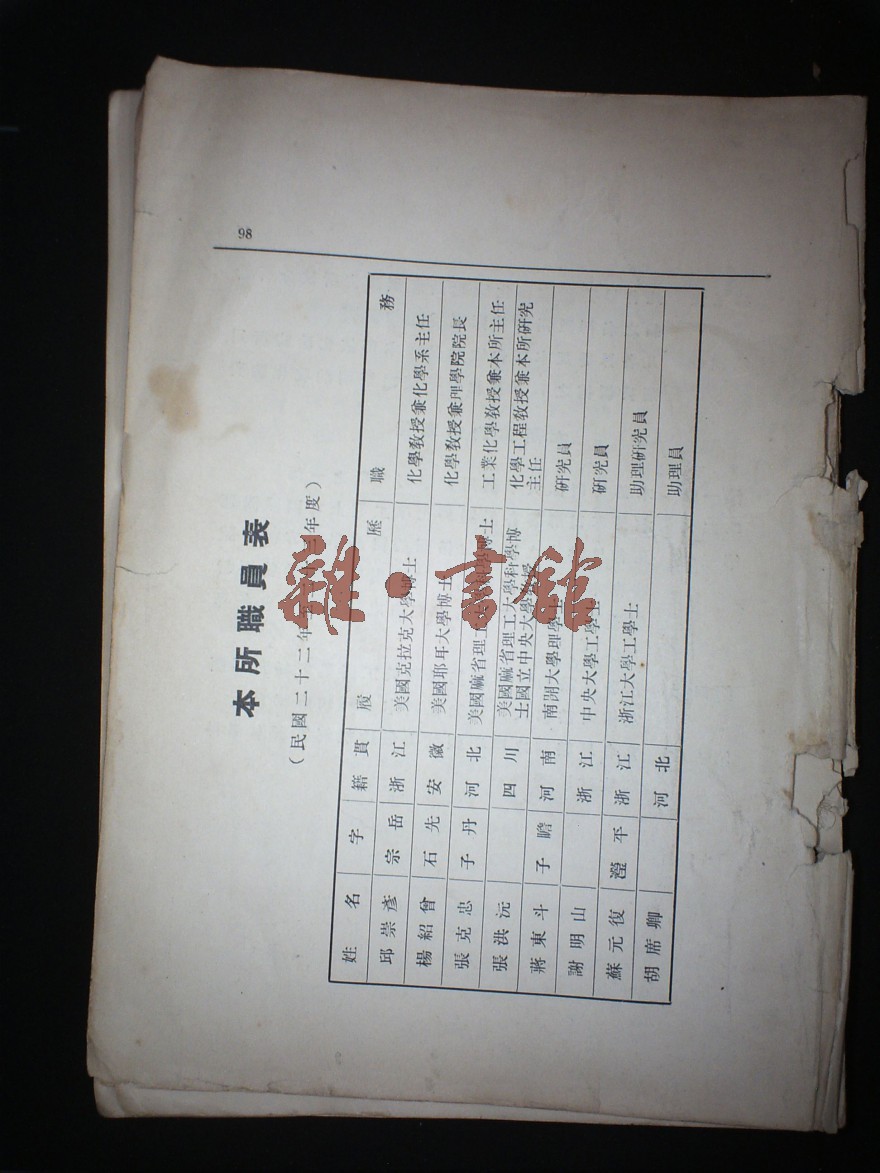 98
本所職員表
(民國二十二年至二十三年度)
姓 名 字 籍 貫 履 歷 職 務
邱崇彥 宗岳 浙江 美國克拉克大學博士 化學教授兼化學系主任
楊紹曾 石先 安徽 美國耶耳大學博士 化學教授兼理學院院長
張克忠 子丹 河北 美國麻省理工 博士 工業化學教授兼本所主任
張洪沅 四川 美國麻省理工大學科學博士國立中央大學 化學工程教授兼本所研究主任
蔣東斗 子瞻 河南 南開大學理學士 研究員
謝明山 浙江 中央大學工學士 研究員
蘇元復 瀅平 浙江 浙江大學工學士 助理研究員
胡席卿 河北 助理員